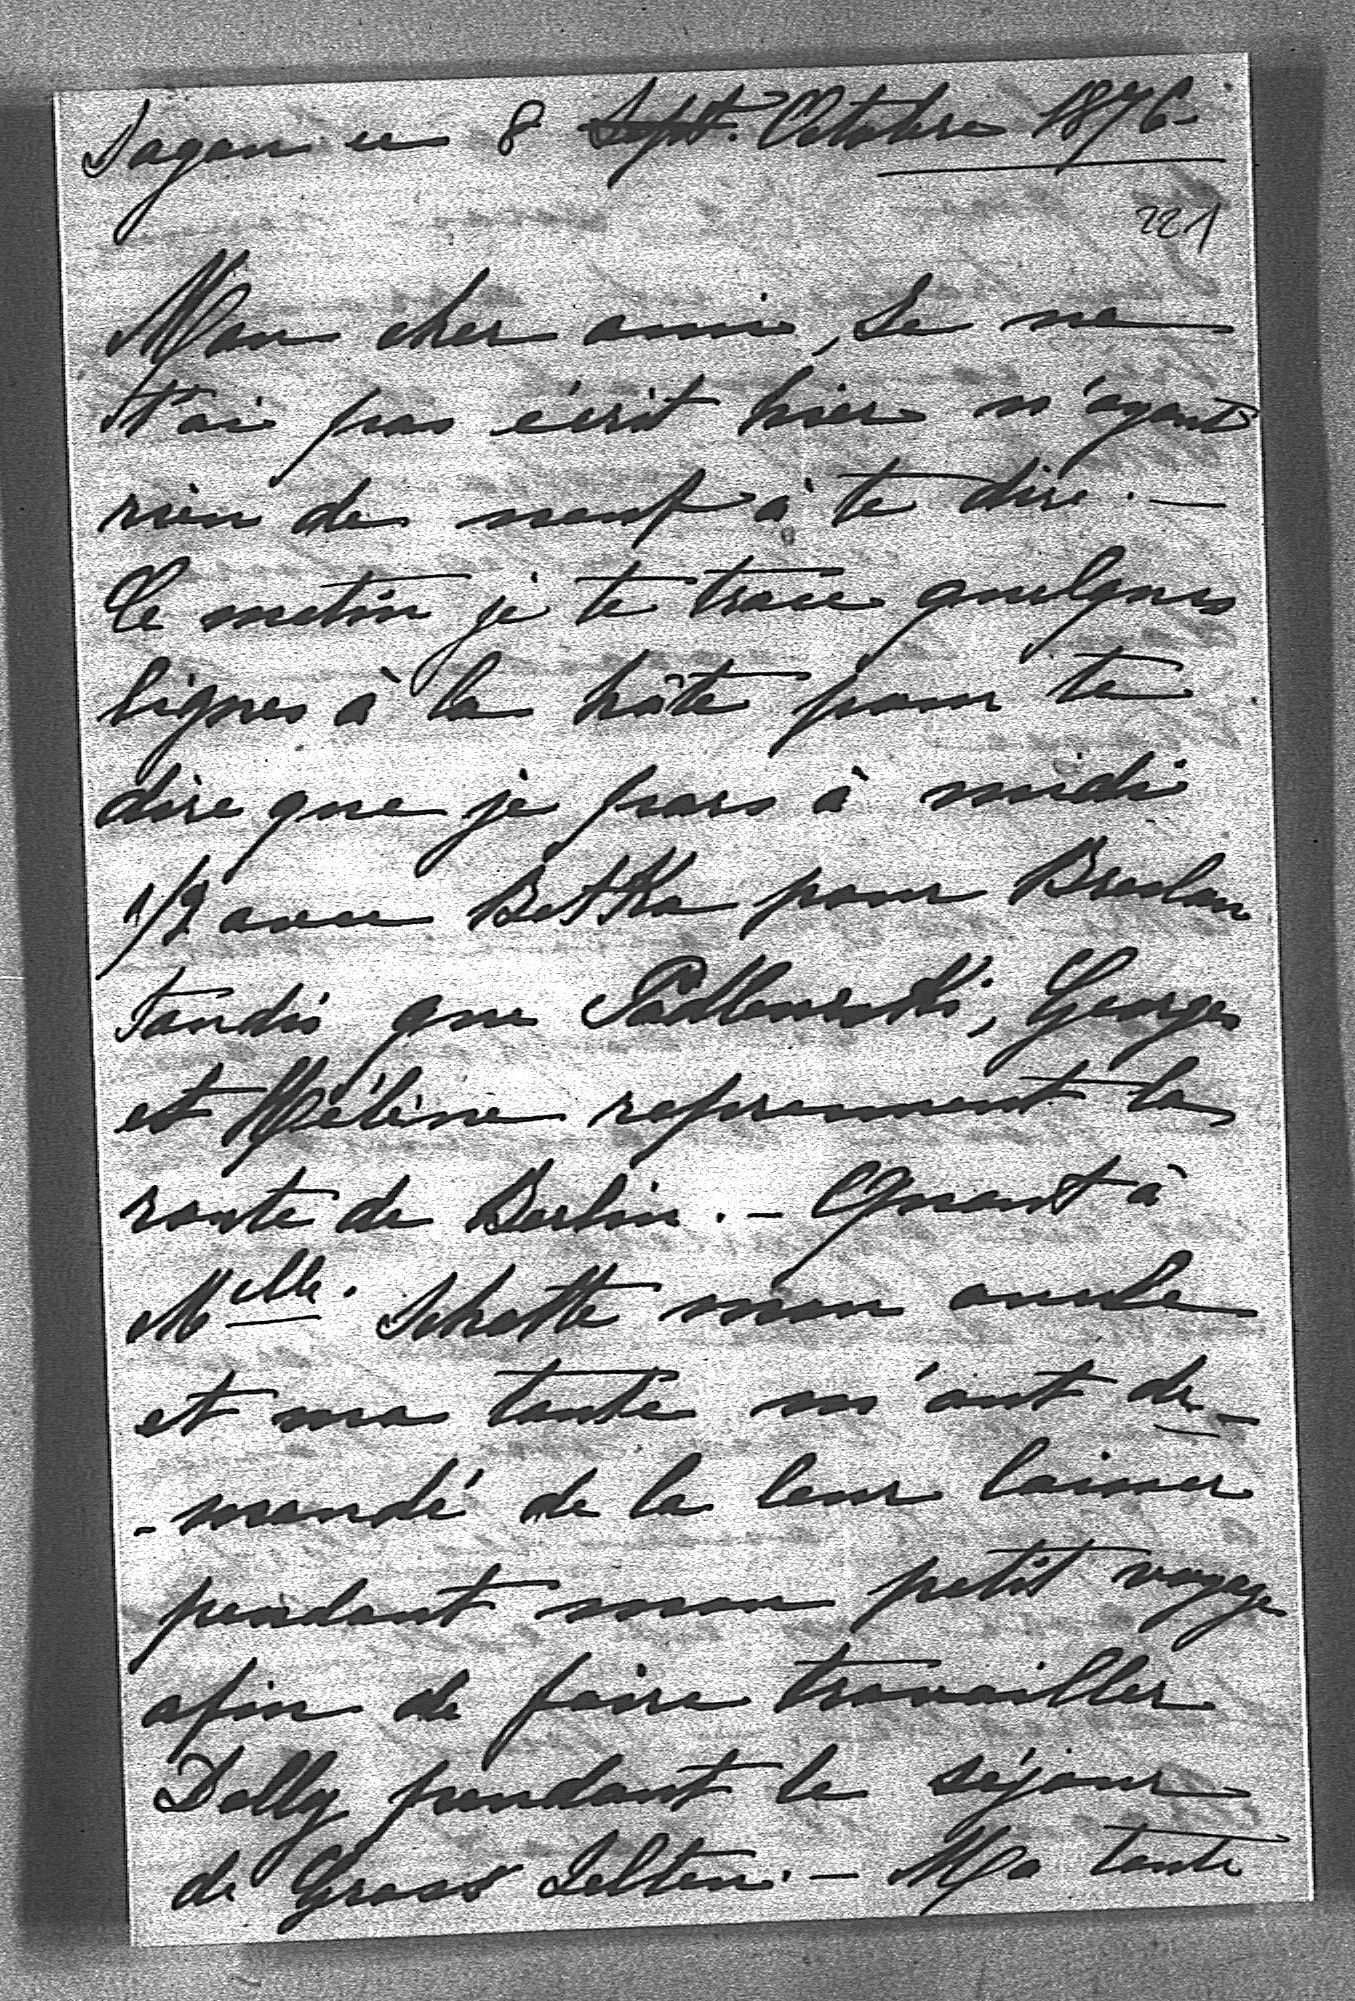 Sagan ce 8 Sept. Octobre 1876.
221
Mon cher ami, Je ne
t'ai pas écrit hier n'ayant
rien de neuf à te dire. —
Ce matin je te trace quelques
lignes à la hâte pour te
dire que je pars à midi
1/2 avec Betka pour Breslau
tandis que Padlewski, Georges
et Hélène reprennent la
route de Berlin. — Quant à
Melle. Schotte mon oncle
et ma tante m'ont de-
-mandé de la leur laisser
pendant mon petit voyage
afin de faire travailler
Dolly pendant le séjour
de Gross Selten. — Ma tante